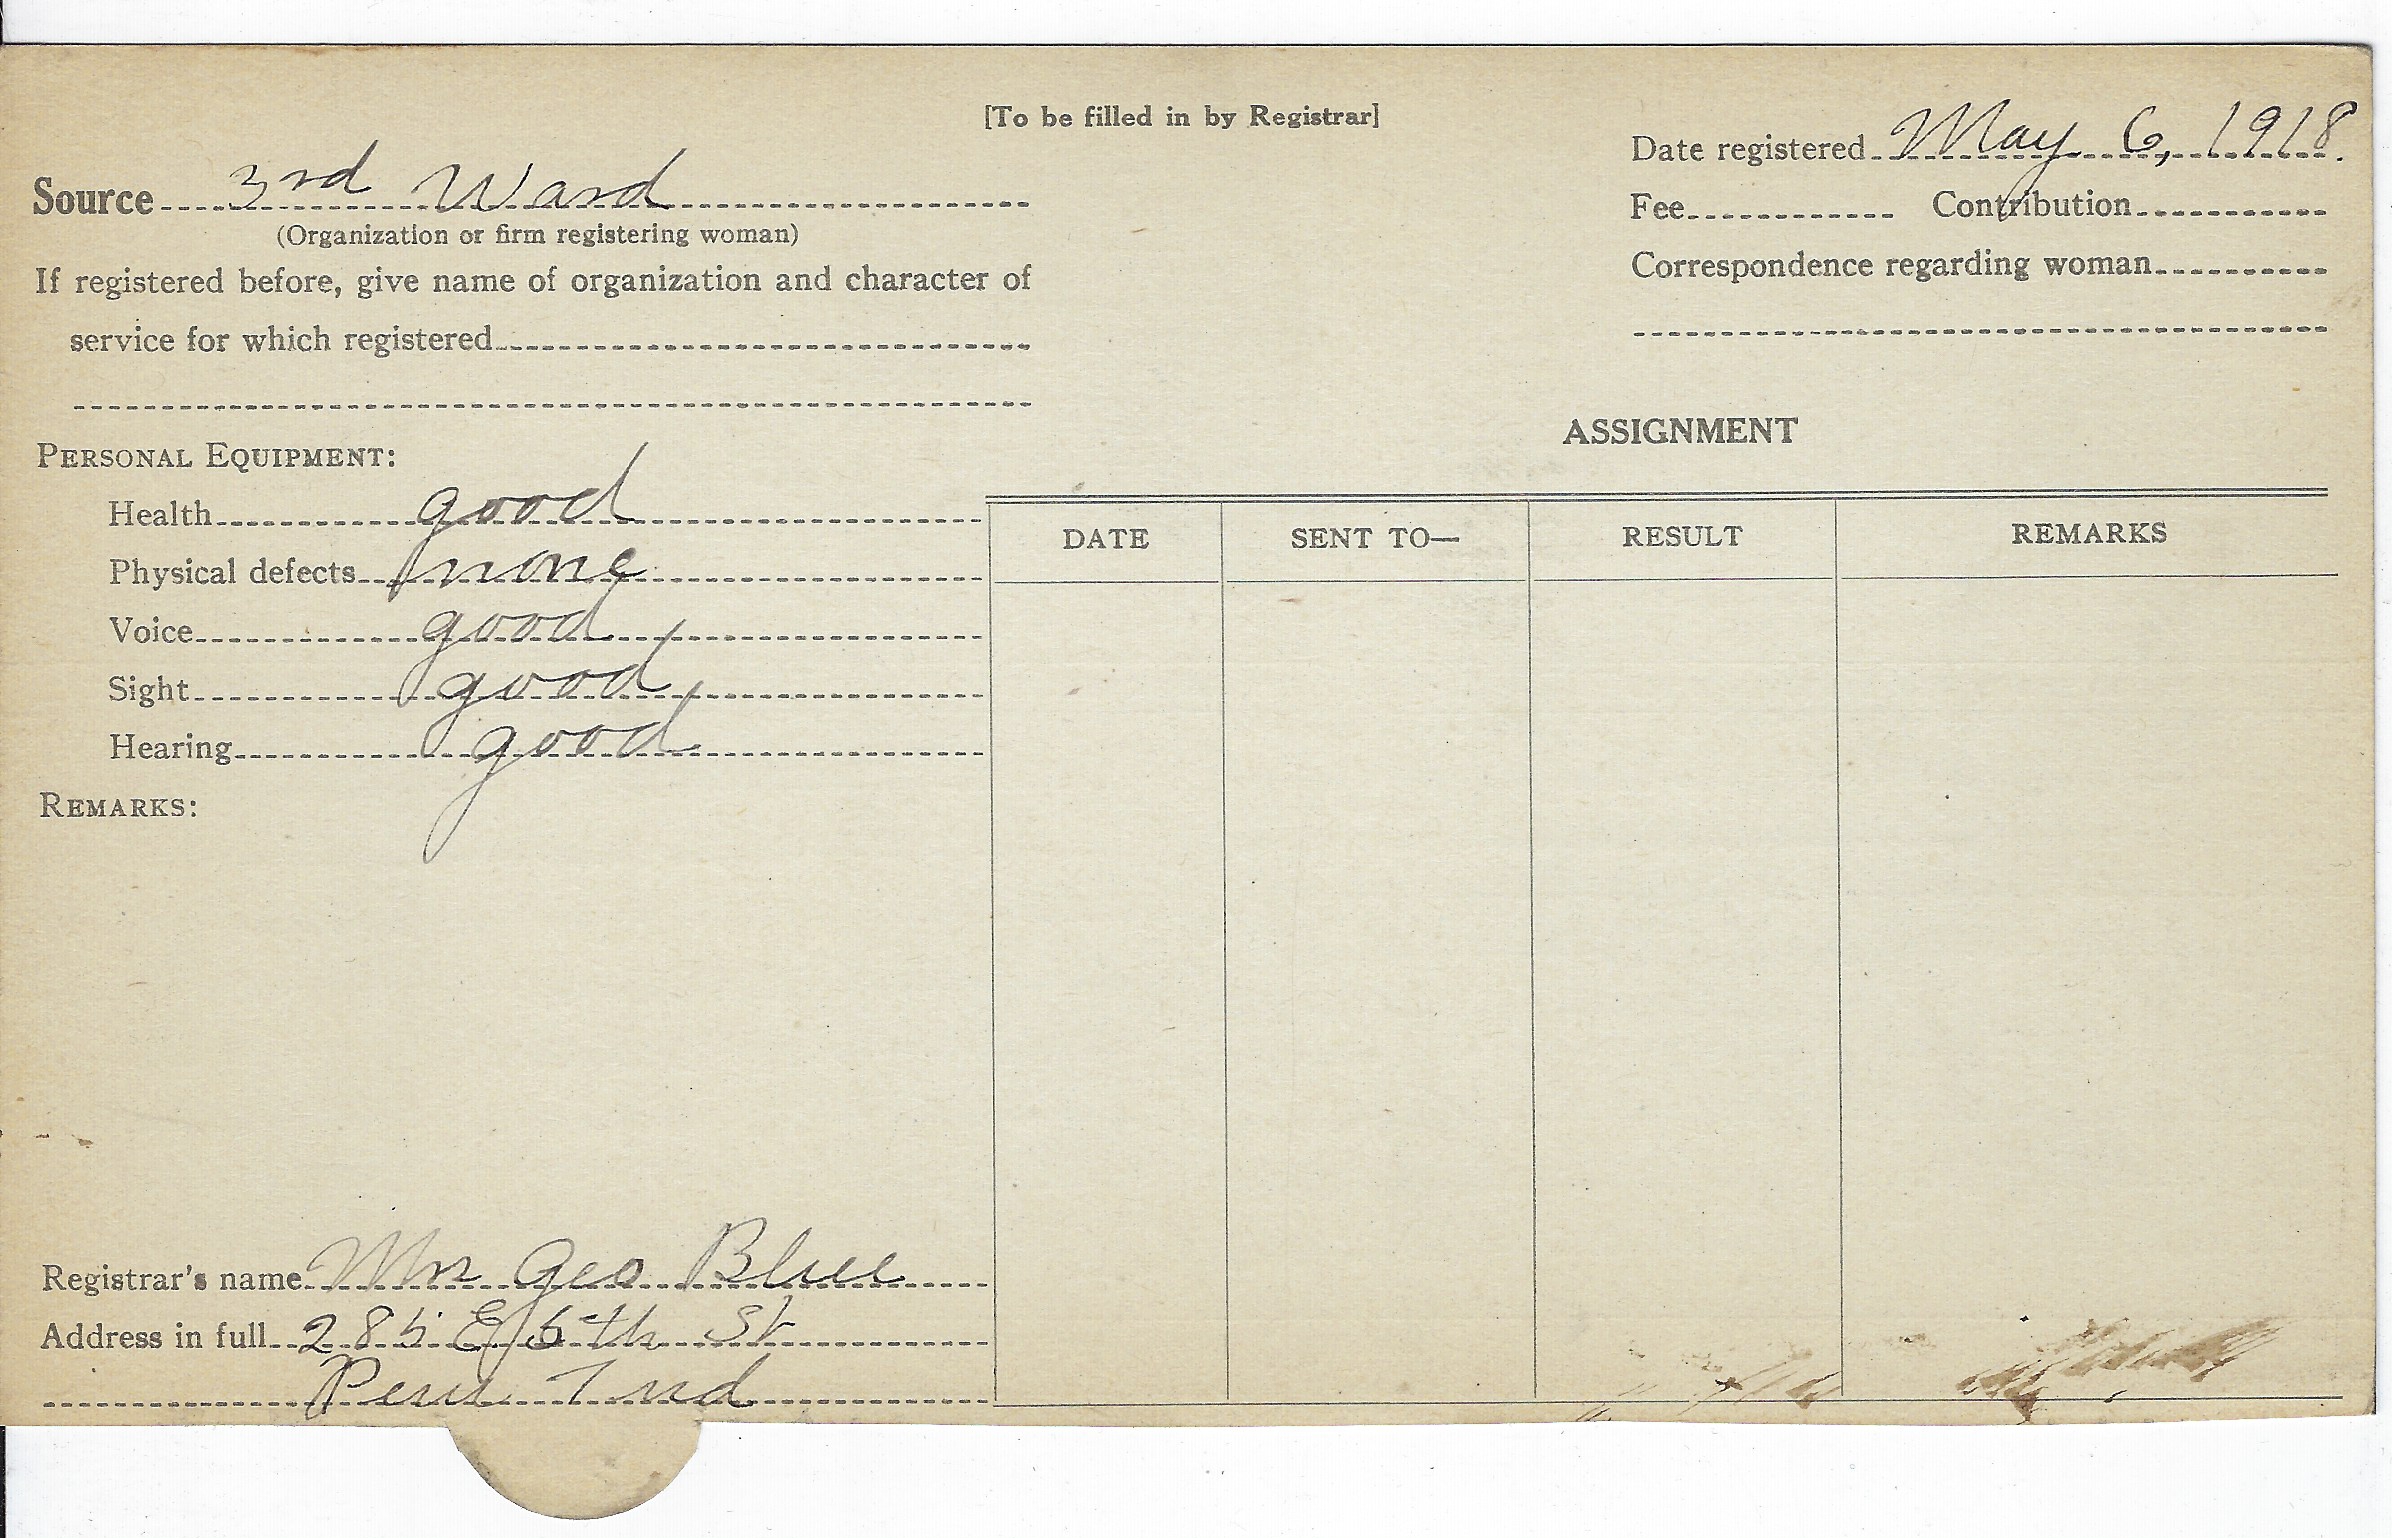 [To be filled in by Registrar]
Date registered May 6, 1918.
Source 3rd Ward
(Organization or firm registering woman)
Fee Contribution
If registered before, give name of organization and character of
service for which registered
Correspondence regarding woman
PERSONAL EQUIPMENT:
Health good
Physical defects none
Voice good
Sight good
Hearing good
REMARKS:
ASSIGNMENT
DATE SENT TO— RESULT REMARKS
Registrar's name Mrs Geo Blue
Address in full 285 E 5th St
Peru Ind